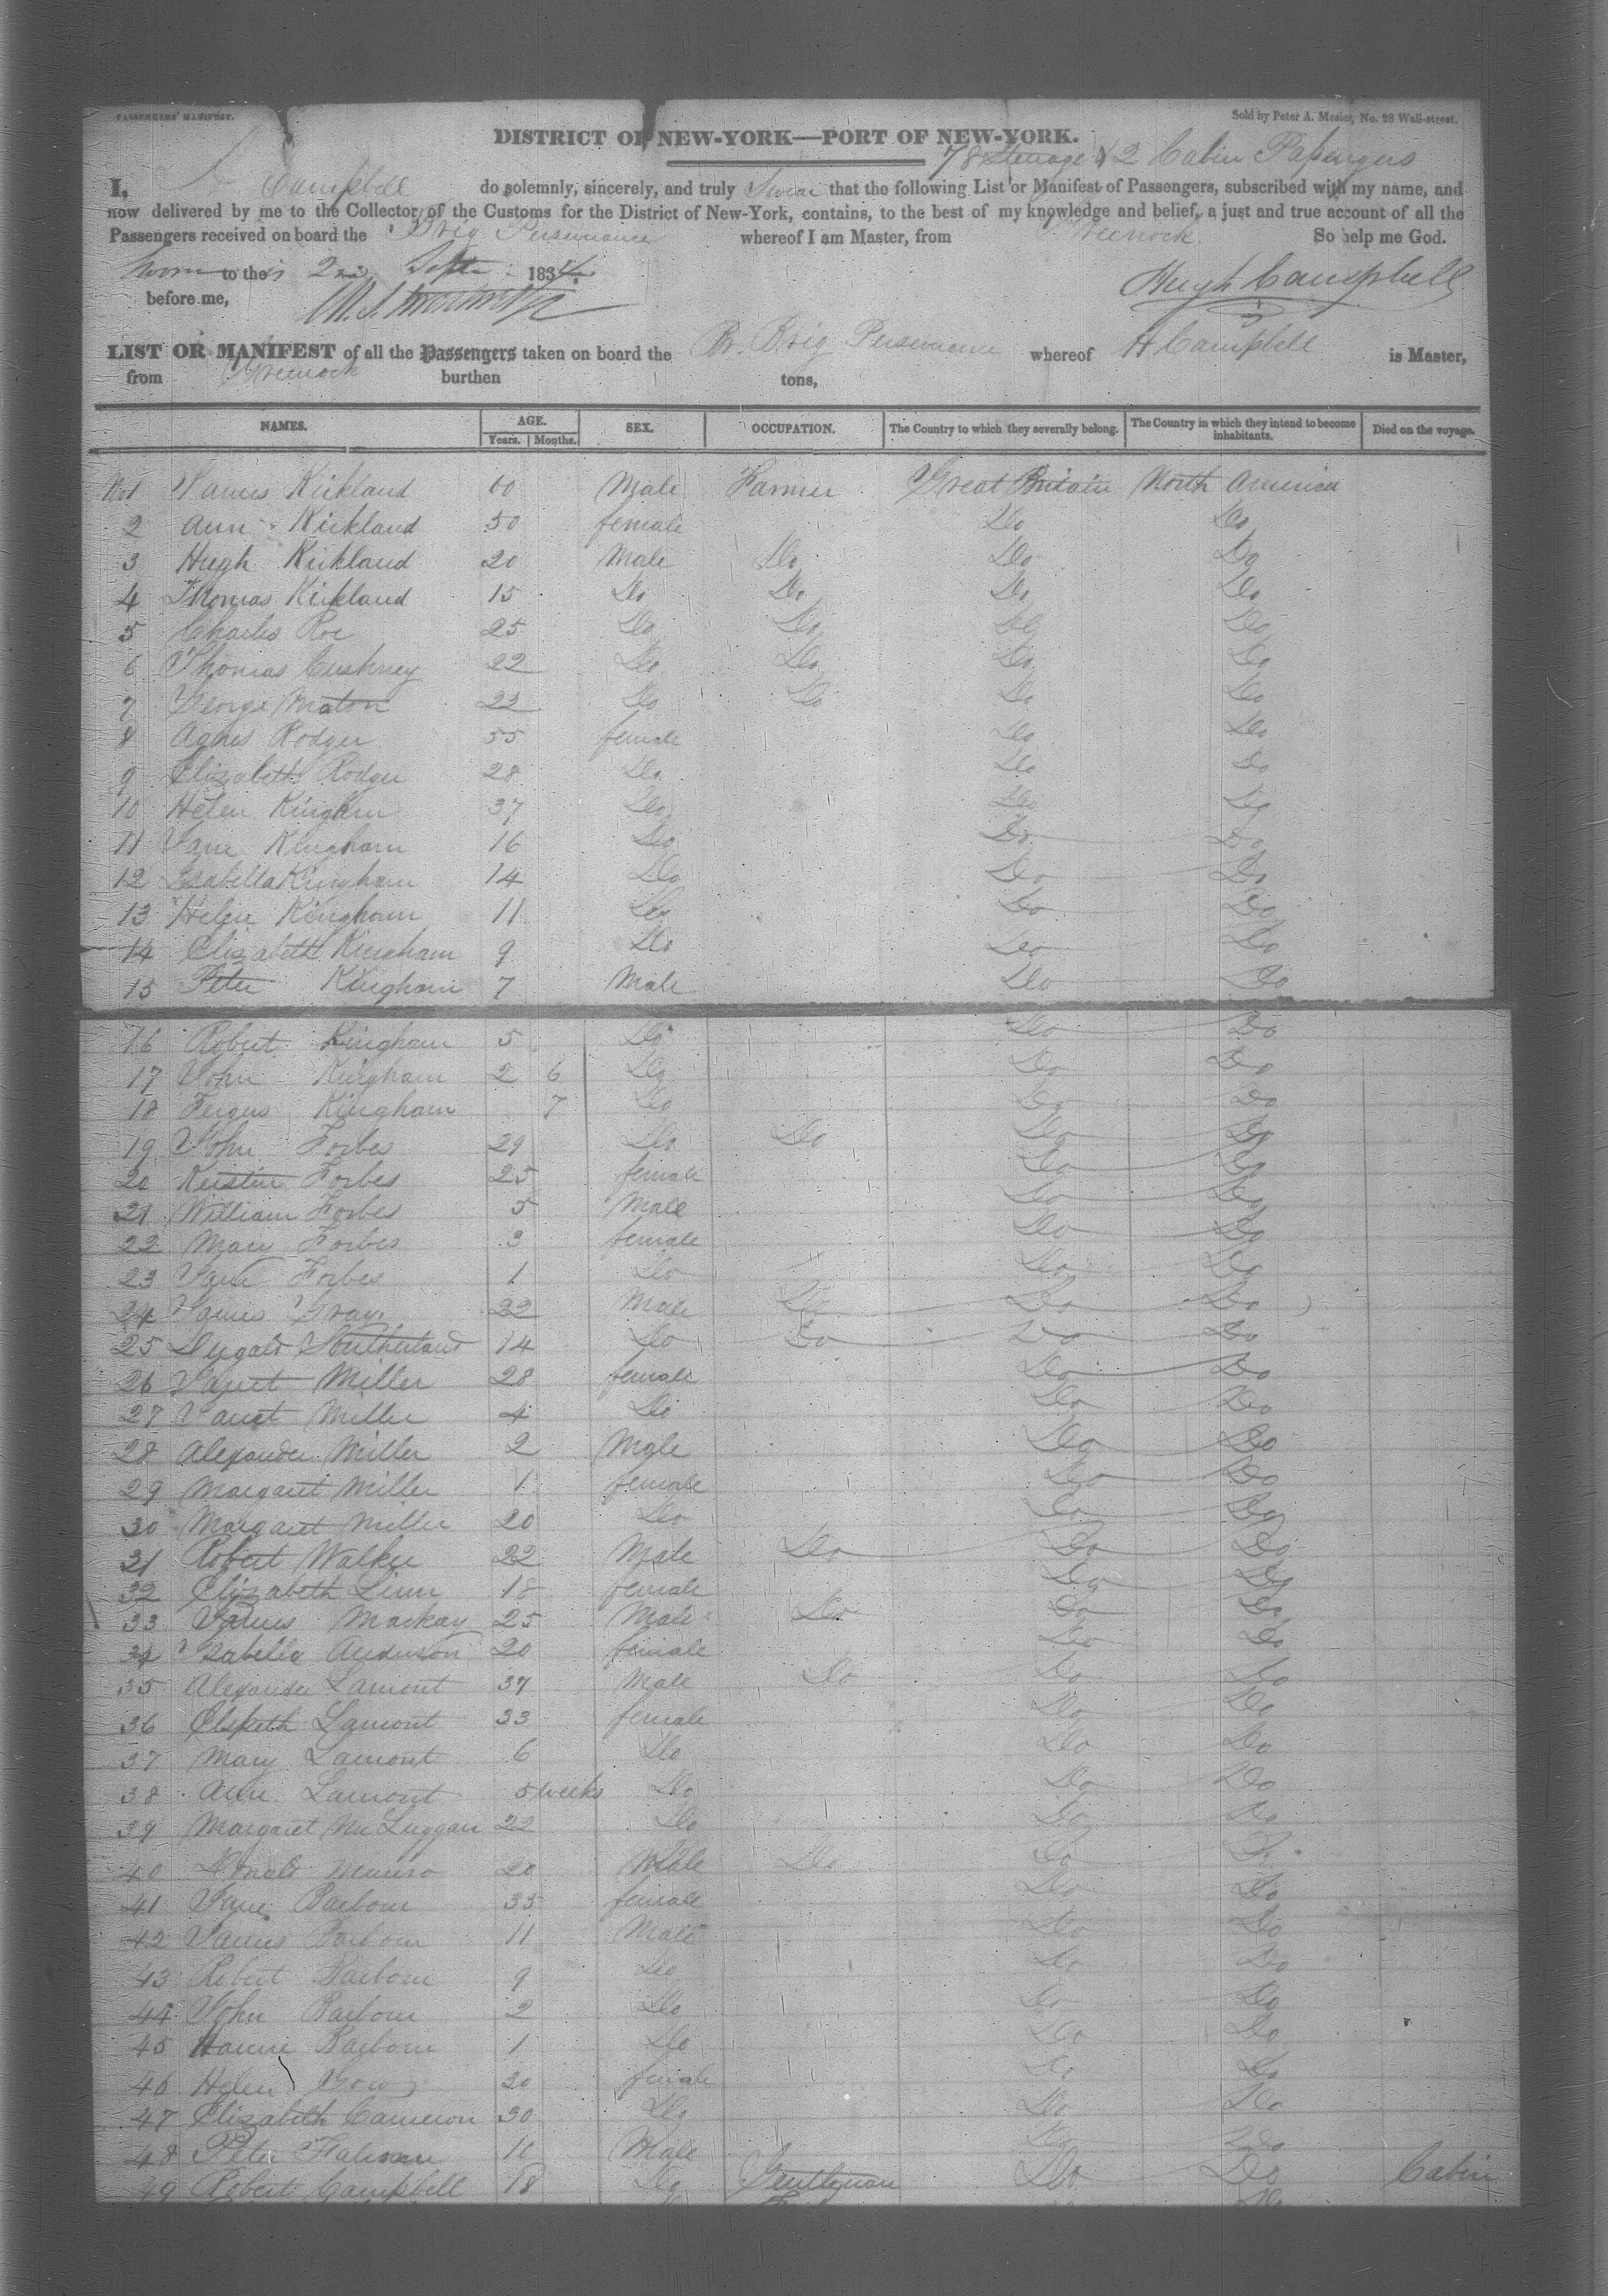 PASSENGERS' MANIFEST.
Sold by Peter A. Mesier, No. 28 Wall-street.
DISTRICT OF NEW-YORK—PORT OF NEW-YORK.
78 Steerage & 2 Cabin Passengers
I, H Campbell do solemnly, sincerely, and truly Swear that the following List or Manifest of Passengers, subscribed with my name, and
now delivered by me to the Collector of the Customs for the District of New-York, contains, to the best of my knowledge and belief, a just and true account of all the
Passengers received on board the Brig Perseverance whereof I am Master, from Greenock. So help me God.
Sworn to the 2nd Septr 183
before me,
Hugh Campbell
LIST OR MANIFEST of all the Passengers taken on board the Br. Brig Perseverance whereof H Campbell is Master,
from Greenock burthen tons,
NAMES. AGE. SEX. OCCUPATION. The Country to which they severally belong. The Country in which they intend to become inhabitants. Died on the voyage.
Years. Months.
No 1 James Kirkland 60 Male Farmer Great Britain North America
2 Ann Kirkland 50 female Do Do
3 Hugh Kirkland 20 Male Do Do Do
4 Thomas Kirkland 15 Do Do Do Do
5 Charles Roe 25 Do Do Do Do
6 Thomas Cushney 22 Do Do Do Do
7 George Maton 22 Do Do Do Do
8 Agnes Rodger 55 female Do Do
9 Elizabeth Rodger 28 Do Do Do
10 Helen Kingham 37 Do Do Do
11 Jane Kingham 16 Do Do Do
12 Isabella Kingham 14 Do Do Do
13 Helen Kingham 11 Do Do Do
14 Elizabeth Kingham 9 Do Do Do
15 Peter Kingham 7 Male Do Do
16 Robert Kingham 5 Do Do Do
17 John Kingham 2 6 Do Do Do
18 Fergus Kingham 7 Do Do Do
19 John Forbes 29 Do Do Do Do
20 Kirstin Forbes 25 female Do Do
21 William Forbes 5 Male Do Do
22 Mary Forbes 3 female Do Do
23 Jane Forbes 1 Do Do Do
24 James Gray 22 Male Do Do Do
25 Dugald Southerland 14 Do Do Do Do
26 Janet Miller 28 female Do Do
27 Janet Miller 4 Do Do Do
28 Alexander Miller 2 Male Do Do
29 Margaret Miller 1 female Do Do
30 Margaret Miller 20 Do Do Do
31 Robert Walker 22 Male Do Do Do
32 Elizabeth Linn 18 female Do Do
33 James Mackay 25 Male Do Do Do
34 Isabella Anderson 20 female Do Do
35 Alexander Lamont 37 Male Do Do Do
36 Elspeth Lamont 33 female Do Do
37 Mary Lamont 6 Do Do Do
38 Ann Lamont 5 weeks Do Do Do
39 Margaret Mc Luggan 22 Do Do Do
40 Donald Munro 20 Male Do Do Do
41 Jane Barbour 35 female Do Do
42 James Barbour 11 Male Do Do
43 Robert Barbour 9 Do Do Do
44 John Barbour 2 Do Do Do
45 Barbour 1 Do Do Do
46 Helen Gow 30 female Do Do
47 Elizabeth Cameron 30 Do Do Do
48 Peter 10 Male Do Do
49 Robert Campbell 18 Do Gentleman Do Do Cabin